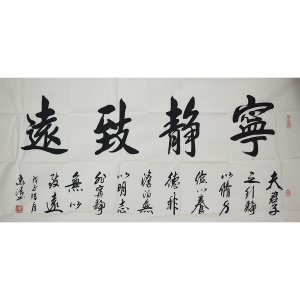 寧靜致遠
夫君子
之行靜
以脩身
儉以養
德非
澹泊無
以明志
非寧靜
無以
致遠
戊子
月